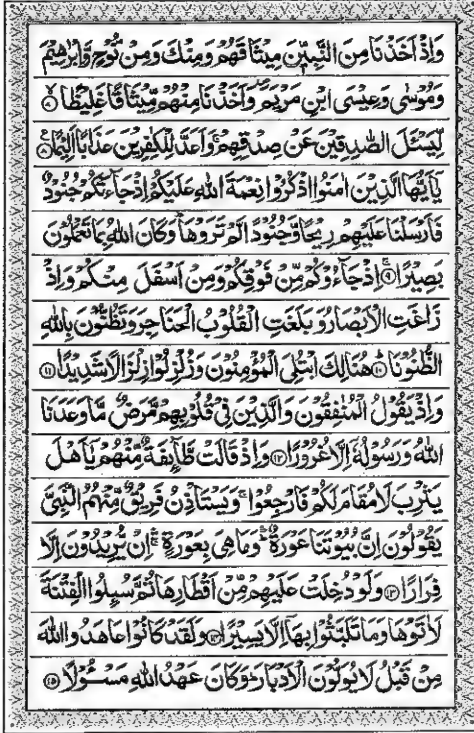 وَاِذْ اَخَذْنَا مِنَ النَّبِيّٖنَ مِيْثَاقَهُمْ وَمِنْكَ وَمِنْ نُّوْحٍ وَّاِبْرٰهِيْمَ
وَمُوْسٰى وَعِيْسَى ابْنِ مَرْيَمَ ۪ وَاَخَذْنَا مِنْهُمْ مِّيْثَاقًا غَلِيْظًا ۙ۷
لِّيَسْئَلَ الصّٰدِقِيْنَ عَنْ صِدْقِهِمْ ۚ وَاَعَدَّ لِلْكٰفِرِيْنَ عَذَابًا اَلِيْمًا ۸
يٰٓاَيُّهَا الَّذِيْنَ اٰمَنُوا اذْكُرُوْا نِعْمَةَ اللّٰهِ عَلَيْكُمْ اِذْ جَآءَتْكُمْ جُنُوْدٌ
فَاَرْسَلْنَا عَلَيْهِمْ رِيْحًا وَّجُنُوْدًا لَّمْ تَرَوْهَا ۭ وَكَانَ اللّٰهُ بِمَا تَعْمَلُوْنَ
بَصِيْرًا ۚ ۹ اِذْ جَآءُوْكُمْ مِّنْ فَوْقِكُمْ وَمِنْ اَسْفَلَ مِنْكُمْ وَاِذْ
زَاغَتِ الْاَبْصَارُ وَبَلَغَتِ الْقُلُوْبُ الْحَنَاجِرَ وَتَظُنُّوْنَ بِاللّٰهِ
الظُّنُوْنَا ۱۰ هُنَالِكَ ابْتُلِيَ الْمُؤْمِنُوْنَ وَزُلْزِلُوْا زِلْزَالًا شَدِيْدًا ۱۱
وَاِذْ يَقُوْلُ الْمُنٰفِقُوْنَ وَالَّذِيْنَ فِيْ قُلُوْبِهِمْ مَّرَضٌ مَّا وَعَدَنَا
اللّٰهُ وَرَسُوْلُهٗٓ اِلَّا غُرُوْرًا ۱۲ وَاِذْ قَالَتْ طَّآئِفَةٌ مِّنْهُمْ يٰٓاَهْلَ
يَثْرِبَ لَا مُقَامَ لَكُمْ فَارْجِعُوْا ۚ وَيَسْتَاْذِنُ فَرِيْقٌ مِّنْهُمُ النَّبِيَّ
يَقُوْلُوْنَ اِنَّ بُيُوْتَنَا عَوْرَةٌ ۛ وَمَا هِيَ بِعَوْرَةٍ ۛ اِنْ يُّرِيْدُوْنَ اِلَّا
فِرَارًا ۱۳ وَلَوْ دُخِلَتْ عَلَيْهِمْ مِّنْ اَقْطَارِهَا ثُمَّ سُئِلُوا الْفِتْنَةَ
لَاٰتَوْهَا وَمَا تَلَبَّثُوْا بِهَآ اِلَّا يَسِيْرًا ۱۴ وَلَقَدْ كَانُوْا عَاهَدُوا اللّٰهَ
مِنْ قَبْلُ لَا يُوَلُّوْنَ الْاَدْبَارَ ۭ وَكَانَ عَهْدُ اللّٰهِ مَسْئُوْلًا ۱۵